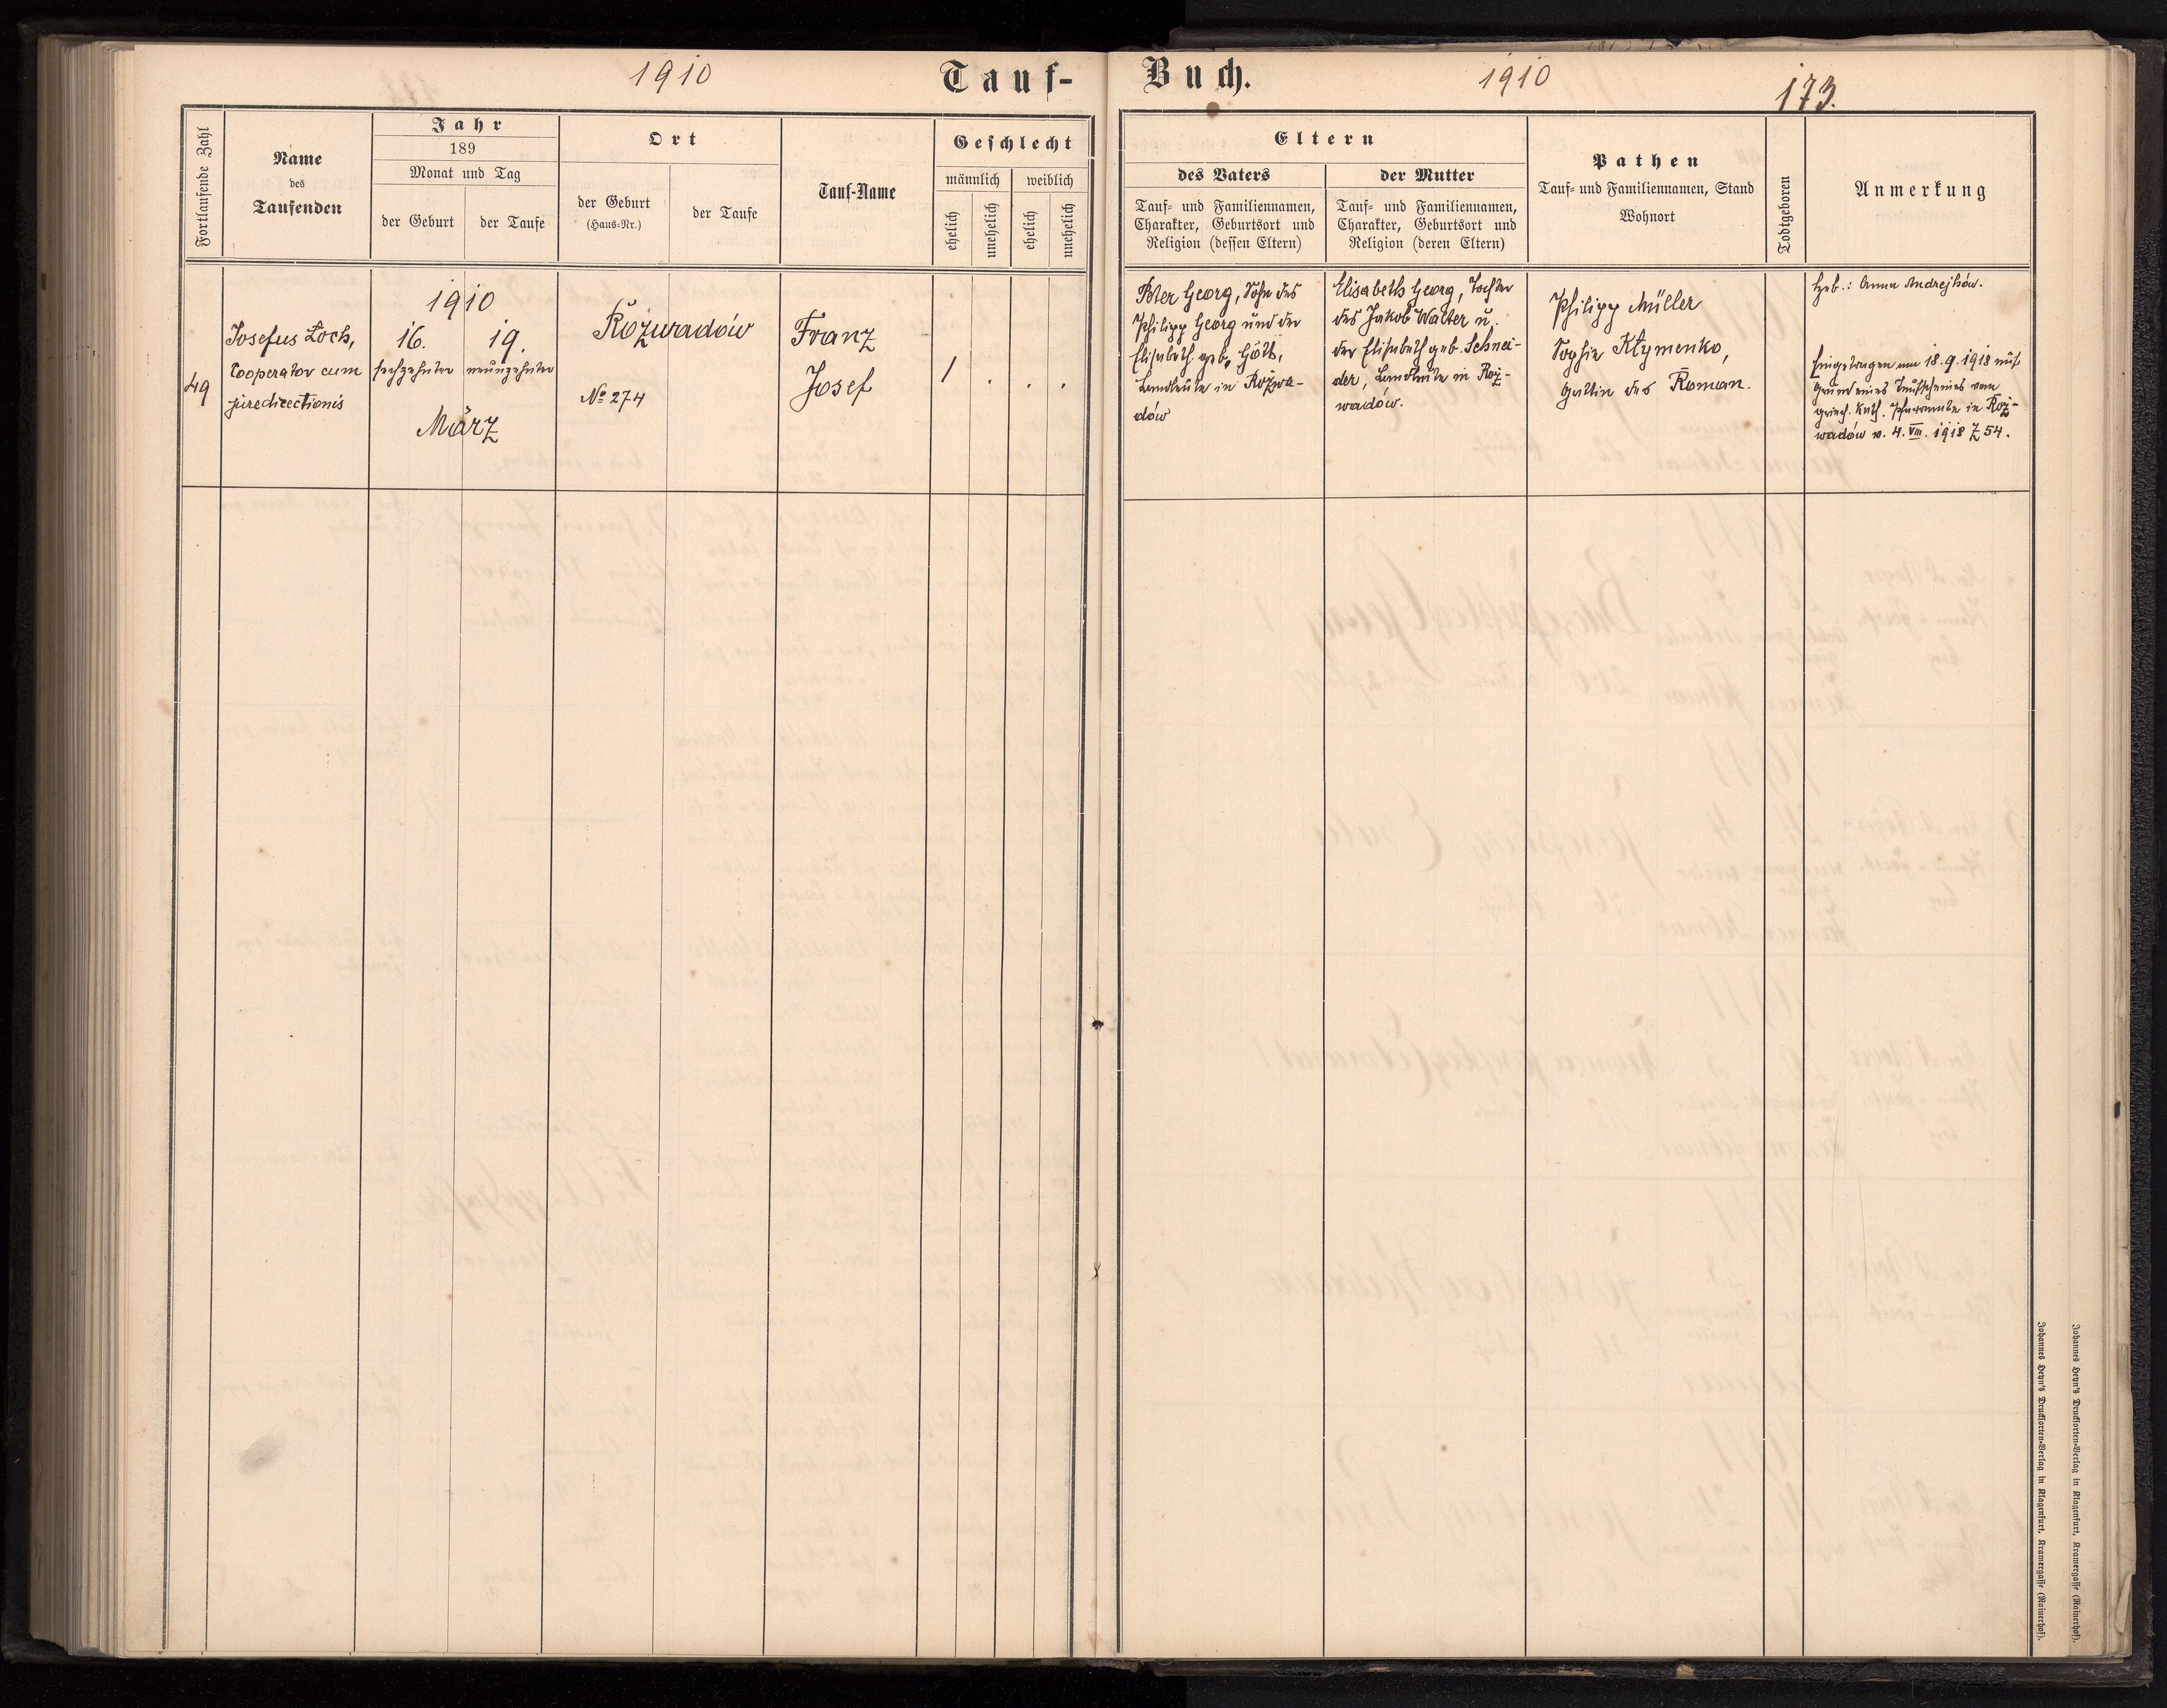 1910 Tauf-Buch. 1910 173.
Fortlaufende Zahl
Name
des
Taufenden
Jahr
189
Monat und Tag
der Geburt
der Taufe
Ort
der Geburt
(Haus-Nr.)
der Taufe
Tauf-Name
Geschlecht
männlich
weiblich
ehelich
unehelich
ehelich
unehelich
Eltern
des Vaters
Tauf- und Familiennamen,
Charakter, Geburtsort und
Religion (dessen Eltern)
der Mutter
Tauf- und Familiennamen,
Charakter, Geburtsort und
Religion (deren Eltern)
Pathen
Tauf- und Familiennamen, Stand
Wohnort
Todtgeboren
Anmerkung
49
Josefus Loch,
Cooperator cum
juredicectionis
1910
16. 19.
sechzehnter neunzehnter
März
Rozwadów
№ 274
Franz
Josef
1 . . .
Peter Georg, Sohn des
Philipp Georg und der
Elisabeth geb.
Landleute in Rozwa-
dów
Elisabeth Georg, Tochter
des Jakob Walter u.
der Elisabeth geb. Schnei-
der, Landleute in Roz-
wadów.
Philipp Müller
Sophie Klymenko,
Gattin des Roman.
Heb.: Anna Andrejków.
Eingetragen am 18.9.1918 auf
Grund eines Taufscheines vom
griech. kath. Pfarramte in Roz-
wadów v. 4. VIII. 1918 Z 54.
Johannes Heyn's Drucksorten-Verlag in Klagenfurt, Kramergasse (Rainerhof).
Johannes Heyn's Drucksorten-Verlag in Klagenfurt, Kramergasse (Rainerhof).